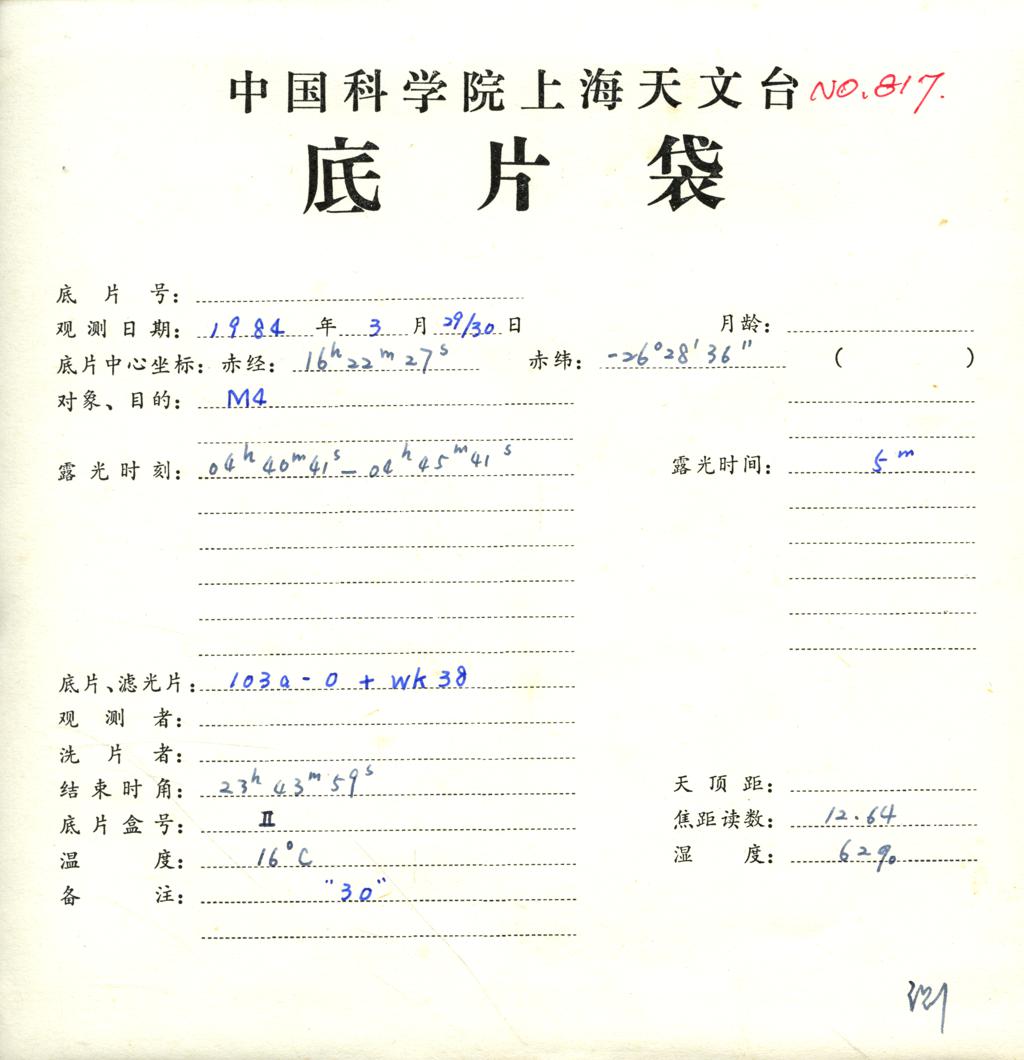 中国科学院上海天文台 NO.817.
底片袋
底片号:
观测日期: 1984 年 3 月 29/30 日 月龄:
底片中心坐标: 赤经: 16h22m27s 赤纬: -26°28'36" ( )
对象、目的: M4
露光时刻: 04h40m41s - 04h45m41s 露光时间: 5m
底片、滤光片: 103a-0 + WK38
观测者:
洗片者:
结束时角: 23h43m59s 天顶距:
底片盒号: II 焦距读数: 12.64
温度: 16°C 湿度: 62%
备注: "30"